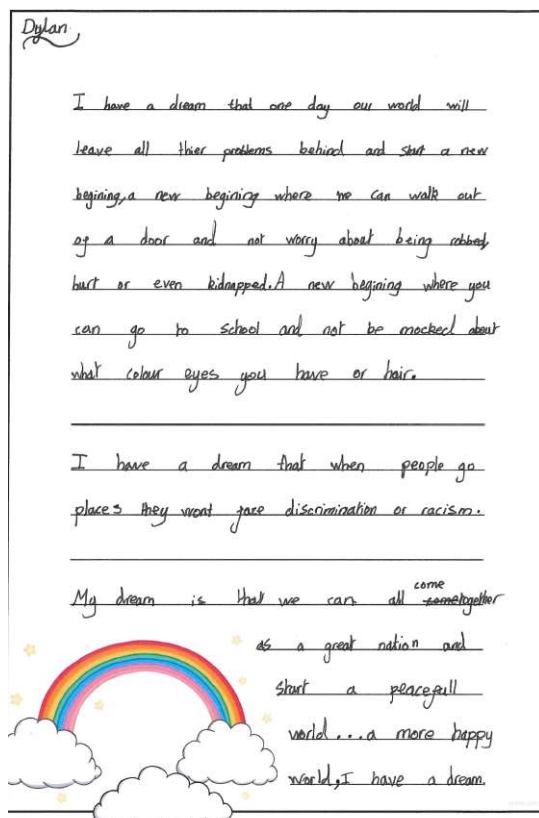 Dylan
I have a dream that one day our world will
leave all thier problems behind and start a new
begining, a new begining where we can walk out
of a door and not worry about being robbed,
hurt or even kidnapped. A new begining where you
can go to school and not be mocked about
what colour eyes you have or hair.
I have a dream that when people go
places they wont face discrimination or racism.
My dream is that we can all come together
as a great nation and
start a peacefull
world...a more happy
world, I have a dream.